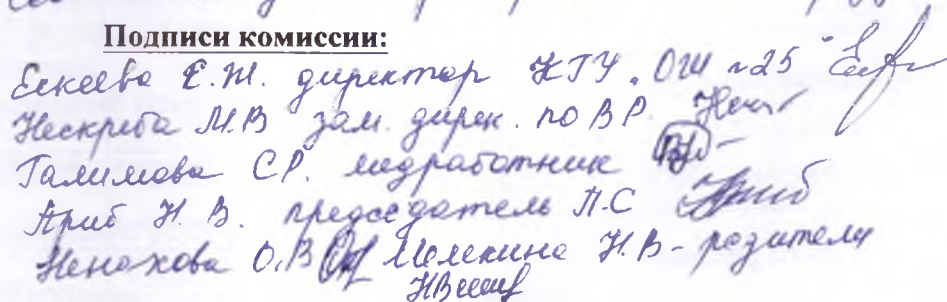 Подписи комиссии:
Екеева Е.Ж. директор КГУ "ОШ №25"
Нескреба М.В зам. дирек. по ВР.
Галимова С.Р. медработник
Ариб Н.В. председатель П.С
Ненахова О.В Мелекина Н.В - родители